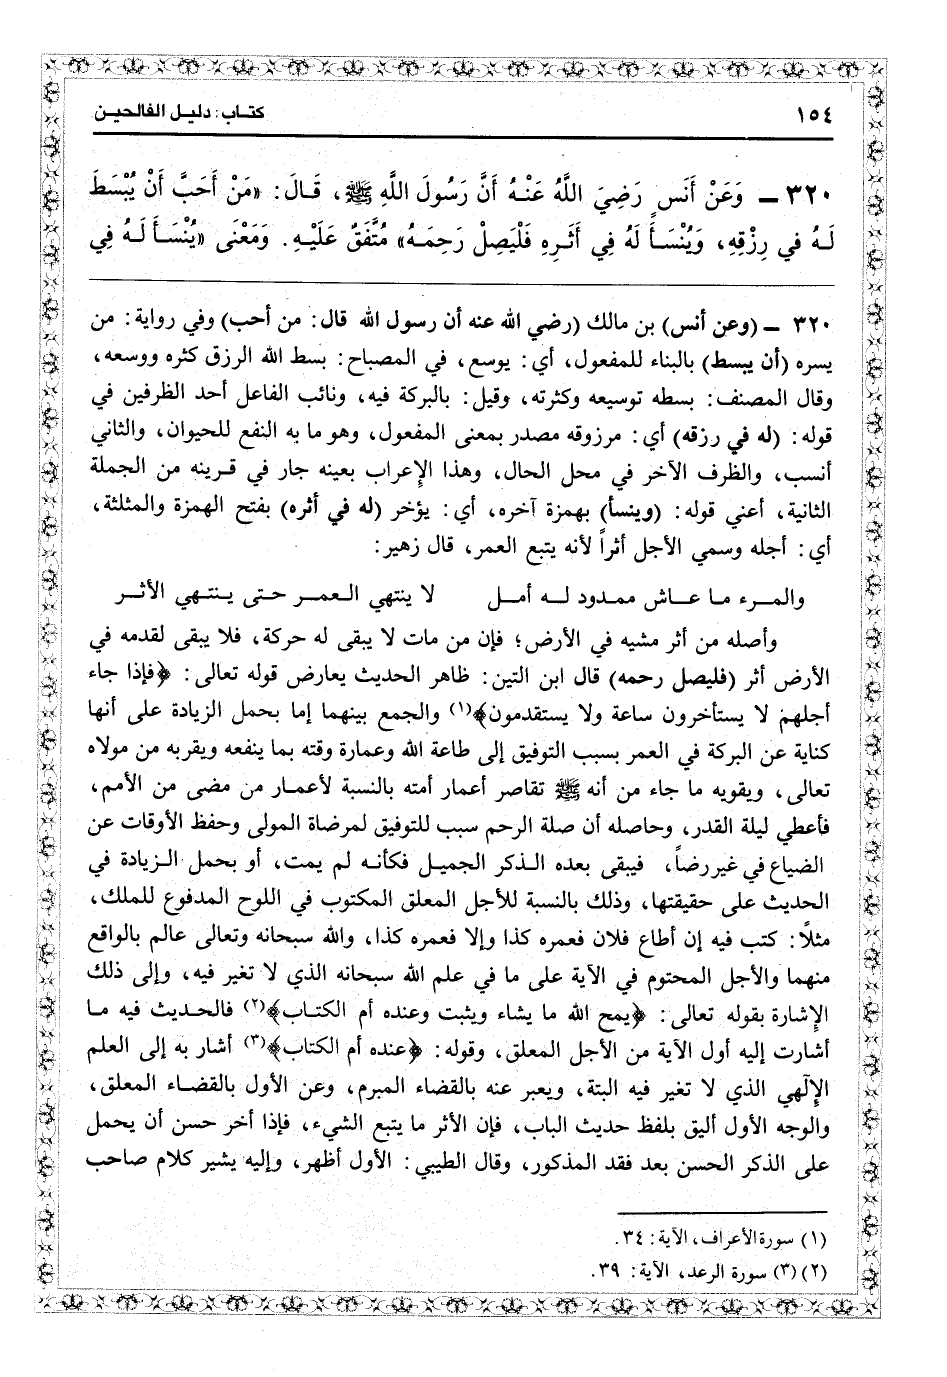 ١٥٤
كتاب: دليل الفالحين
٣٢٠ ـ وَعَنْ أَنَسٍ رَضِيَ اللَّهُ عَنْهُ أَنَّ رَسُولَ اللَّهِ ﷺ، قَالَ: «مَنْ أَحَبَّ أَنْ يُبْسَطَ
لَهُ في رِزْقِهِ، وَيُنْسَأَ لَهُ فِي أَثَرِهِ فَلْيَصِلْ رَحِمَهُ» مُتَّفَقٌ عَلَيْهِ. وَمَعْنَى «يُنْسَأَ لَهُ فِي
٣٢٠ ـ (وعن أنس) بن مالك (رضي الله عنه أن رسول الله قال: من أحب) وفي رواية: من
يسره (أن يبسط) بالبناء للمفعول، أي: يوسع، في المصباح: بسط الله الرزق كثره ووسعه،
وقال المصنف: بسطه توسيعه وكثرته، وقيل: بالبركة فيه، ونائب الفاعل أحد الظرفين في
قوله: (له في رزقه) أي: مرزوقه مصدر بمعنى المفعول، وهو ما به النفع للحيوان، والثاني
أنسب، والظرف الآخر في محل الحال، وهذا الإعراب بعينه جار في قرينه من الجملة
الثانية، أعني قوله: (وينسأ) بهمزة آخره، أي: يؤخر (له في أثره) بفتح الهمزة والمثلثة،
أي: أجله وسمي الأجل أثراً لأنه يتبع العمر، قال زهير:
والمرء ما عاش ممدود له أمل لا ينتهي العمر حتى ينتهي الأثر
وأصله من أثر مشيه في الأرض؛ فإن من مات لا يبقى له حركة، فلا يبقى لقدمه في
الأرض أثر (فليصل رحمه) قال ابن التين: ظاهر الحديث يعارض قوله تعالى: ﴿فإذا جاء
أجلهم لا يستأخرون ساعة ولا يستقدمون﴾(١) والجمع بينهما إما بحمل الزيادة على أنها
كناية عن البركة في العمر بسبب التوفيق إلى طاعة الله وعمارة وقته بما ينفعه ويقربه من مولاه
تعالى، ويقويه ما جاء من أنه ﷺ تقاصر أعمار أمته بالنسبة لأعمار من مضى من الأمم،
فأعطي ليلة القدر، وحاصله أن صلة الرحم سبب للتوفيق لمرضاة المولى وحفظ الأوقات عن
الضياع في غير رضاً، فيبقى بعده الذكر الجميل فكأنه لم يمت، أو بحمل الزيادة في
الحديث على حقيقتها، وذلك بالنسبة للأجل المعلق المكتوب في اللوح المدفوع للملك،
مثلاً: كتب فيه إن أطاع فلان فعمره كذا وإلا فعمره كذا، والله سبحانه وتعالى عالم بالواقع
منهما والأجل المحتوم في الآية على ما في علم الله سبحانه الذي لا تغير فيه، وإلى ذلك
الإشارة بقوله تعالى: ﴿يمح الله ما يشاء ويثبت وعنده أم الكتاب﴾(٢) فالحديث فيه ما
أشارت إليه أول الآية من الأجل المعلق، وقوله: ﴿عنده أم الكتاب﴾(٣) أشار به إلى العلم
الإلٰهي الذي لا تغير فيه البتة، ويعبر عنه بالقضاء المبرم، وعن الأول بالقضاء المعلق،
والوجه الأول أليق بلفظ حديث الباب، فإن الأثر ما يتبع الشيء، فإذا أخر حسن أن يحمل
على الذكر الحسن بعد فقد المذكور، وقال الطيبي: الأول أظهر، وإليه يشير كلام صاحب
(١) سورة الأعراف، الآية: ٣٤.
(٢) (٣) سورة الرعد، الآية: ٣٩.